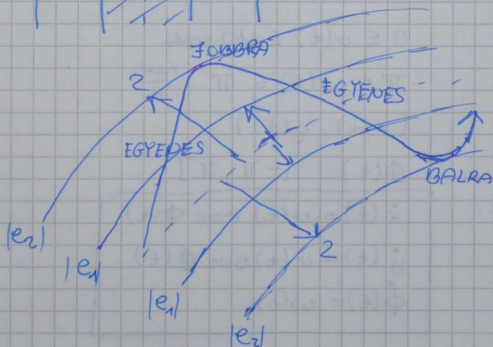 JOBBRA
2
EGYENES
EGYENES
BALRA
|e₂|
|e₁|
2
|e₁|
|e₂|